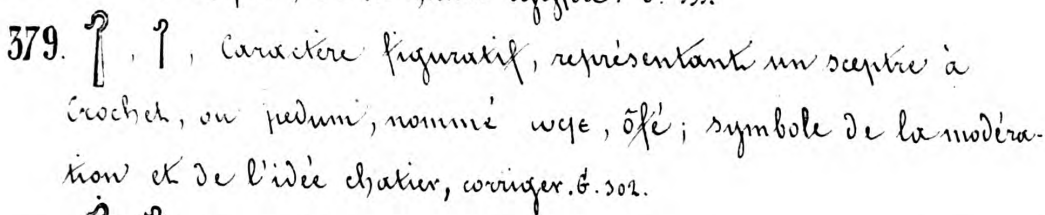 379. 𓋾, 𓋾, Caractère figuratif, représentant un sceptre à
Crochet, ou pedum, nommé ⲱϥⲉ, ôfé; symbole de la modéra-
tion et de l'idée chatier, corriger. G. 302.